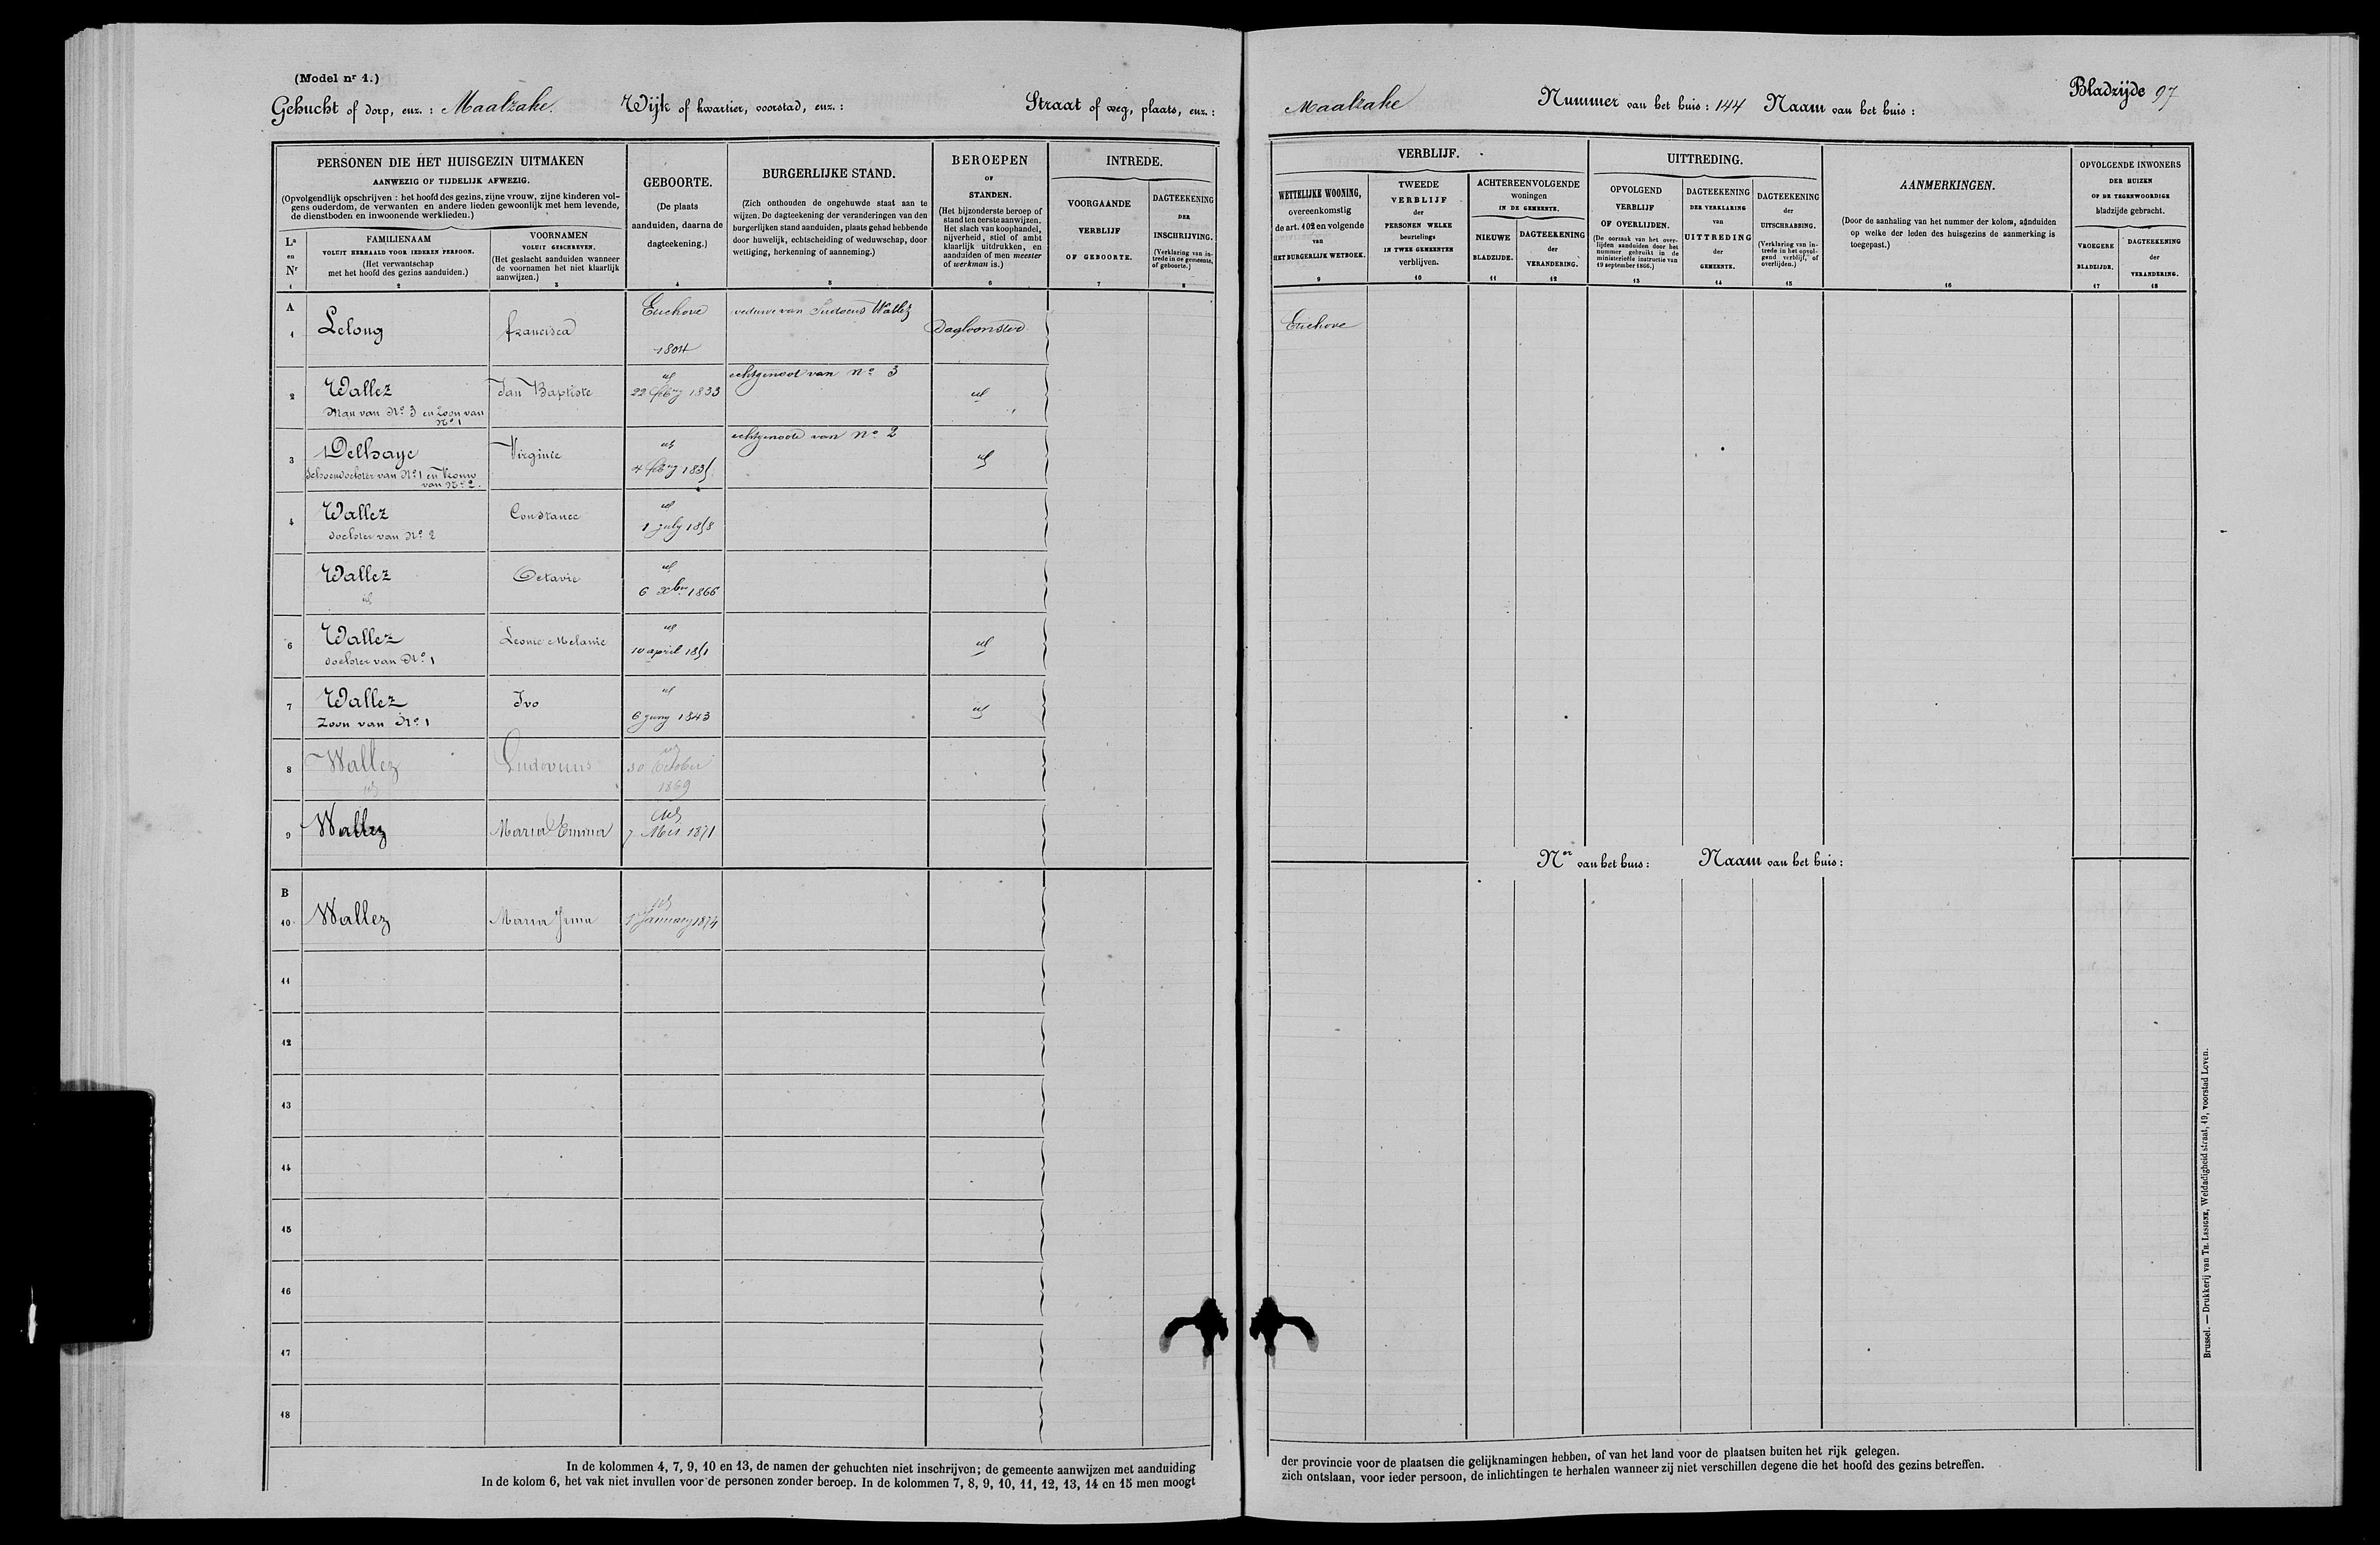 (Model nr 1.)
Gehucht of dorp, enz. : Maalzake. Wijk of kwartier, voorstad, enz. : Straat of weg, plaats, enz. :
PERSONEN DIE HET HUISGEZIN UITMAKEN
AANWEZIG OF TIJDELIJK AFWEZIG.
(Opvolgendlijk opschrijven : het hoofd des gezins, zijne vrouw, zijne kinderen vol-
gens ouderdom, de verwanten en andere lieden gewoonlijk met hem levende,
de dienstboden en inwoonende werklieden.)
La
en
Nr
1
FAMILIENAAM
VOLUIT HERHAALD VOOR IEDEREN PERSOON.
(Het verwantschap
met het hoofd des gezins aanduiden.)
2
VOORNAMEN
VOLUIT GESCHREVEN.
(Het geslacht aanduiden wanneer
de voornamen het niet klaarlijk
aanwijzen.)
3
GEBOORTE.
(De plaats
aanduiden, daarna de
dagteekening.)
4
BURGERLIJKE STAND.
(Zich onthouden de ongehuwde staat aan te
wijzen. De dagteekening der veranderingen van den
burgerlijken stand aanduiden, plaats gehad hebbende
door huwelijk, echtscheiding of weduwschap, door
wettiging, herkenning of aanneming.)
5
BEROEPEN
OF
STANDEN.
(Het bijzonderste beroep of
stand ten eerste aanwijzen.
Het slach van koophandel,
nijverheid, stiel of ambt
klaarlijk uitdrukken, en
aanduiden of men meester
of werkman is.)
6
INTREDE.
VOORGAANDE
VERBLIJF
OF GEBOORTE.
7
DAGTEEKENING
DER
INSCHRIJVING.
(Verklaring van in-
trede in de gemeente,
of geboorte.)
8
A
1 Lelong francisca Etichove weduwe van Ludocus Wallez Dagloonster
1804
2 Wallez Jan Baptiste id echtgenoot van No 3 id
22 feby 1833
Man van No 3 en Zoon van
No 1
3 Delhaye Virginie id echtgenoote van No 2 id
4 feby 1835
Schoondochter van No 1 en Vrouw
van No 2.
4 Wallez Constance id
1 july 1858
dochter van No 2
Wallez Octavie id
id 6 Xber 1866
6 Wallez Leonie Melanie id id
dochter van No 1 10 april 1851
7 Wallez Ivo id id
Zoon van No 1 6 juny 1843
8 Wallez Ludovicus id
id 30 October
1869
9 Wallez Maria Emma id
7 Mei 1871
B
10 Wallez Maria Irma id
1 January 1874
11
12
13
14
15
16
17
18
In de kolommen 4, 7, 9, 10 en 13, de namen der gehuchten niet inschrijven; de gemeente aanwijzen met aanduiding
In de kolom 6, het vak niet invullen voor de personen zonder beroep. In de kolommen 7, 8, 9, 10, 11, 12, 13, 14 en 15 men moogt
Maalzake Nummer van het huis : 144 Naam van het huis : Bladzijde 97
VERBLIJF.
WETTELIJKE WOONING,
overeenkomstig
de art. 102 en volgende
van
HET BURGERLIJK WETBOEK.
9
TWEEDE
VERBLIJF
der
PERSONEN WELKE
beurtelings
IN TWEE GEMEENTEN
verblijven.
10
ACHTEREENVOLGENDE
woningen
IN DE GEMEENTE.
NIEUWE
BLADZIJDE.
11
DAGTEEKENING
der
VERANDERING.
12
UITTREDING.
OPVOLGEND
VERBLIJF
OF OVERLIJDEN.
(De oorzaak van het over-
lijden aanduiden door het
nummer gebruikt in de
ministerieële instructie van
19 september 1866.)
13
DAGTEEKENING
DER VERKLARING
van
UITTREDING
der
GEMEENTE.
14
DAGTEEKENING
der
UITSCHRABBING.
(Verklaring van in-
trede in het opvol-
gend verblijf, of
overlijden.)
15
AANMERKINGEN.
(Door de aanhaling van het nummer der kolom, aanduiden
op welke der leden des huisgezins de aanmerking is
toegepast.)
16
OPVOLGENDE INWONERS
DER HUIZEN
OP DE TEGENWOORDIGE
bladzijde gebracht.
VROEGERE
BLADZIJDE.
17
DAGTEEKENING
der
VERANDERING.
18
Etichove
Nor van het huis : Naam van het huis :
der provincie voor de plaatsen die gelijknamingen hebben, of van het land voor de plaatsen buiten het rijk gelegen.
zich ontslaan, voor ieder persoon, de inlichtingen te herhalen wanneer zij niet verschillen degene die het hoofd des gezins betreffen.
Brussel. — Drukkerij van Th. Lesigne, Weldadigheid straat, 49, voorstad Leven.